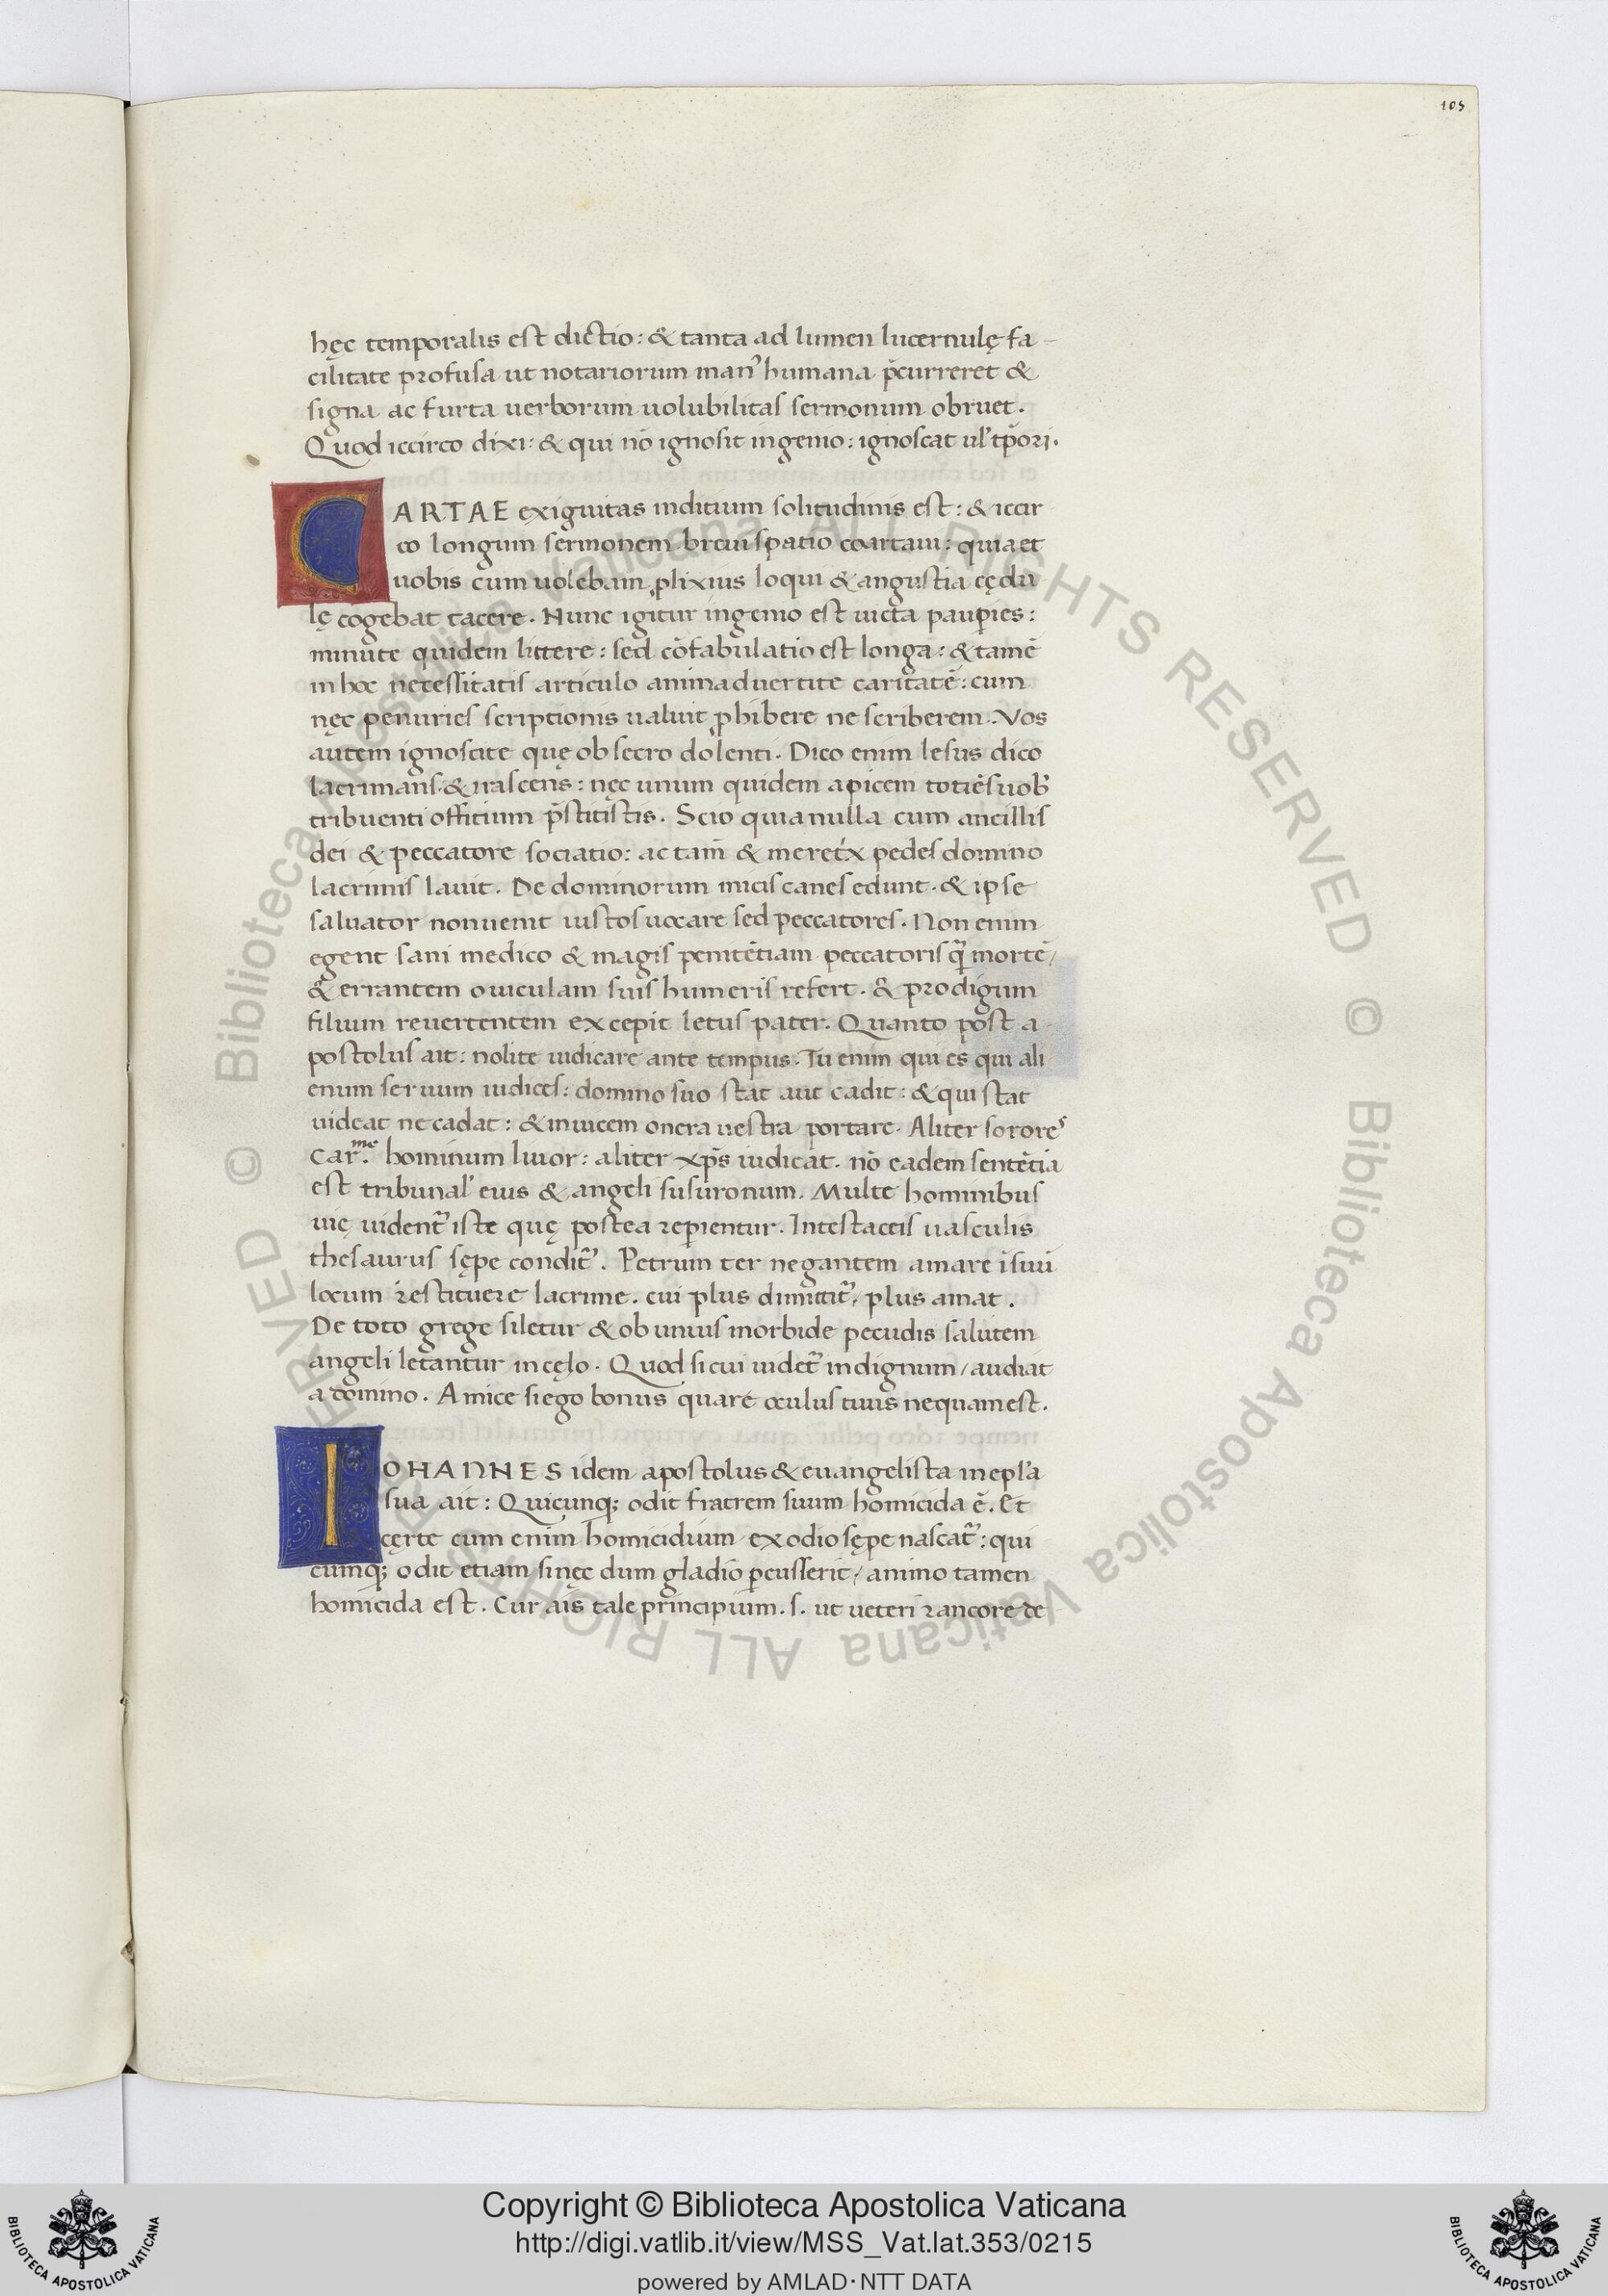 105
hęc temporalis est dictio: & tanta ad lumen lucernulę fa
cilitate profusa ut notariorum man᾿ humana p̄curreret &
signa ac furta uerborum uolubilitas sermonum obruet.
Quod iccirco dixi: & qui nō ignosit ingenio: ignoscat ul᾿ tp̄ori.
CARTAE exiguitas inditium solitudinis est: & iccir
co longum sermonem breui spatio coartaui: quia et
uobis cum uolebam ꝓlixius loqui & angustia cędu
lę cogebat tacere. Nunc igitur ingenio est uicta paup̱ies:
minute quidem littere: sed cōfabulatio est longa: & tamē
in hoc necessitatis articulo animaduertite caritatē: cum
nęc penuries scriptionis ualuit ꝓhibere ne scriberem. Vos
autem ignoscite quę obsecro dolenti. Dico enim lesus dico
lacrimans. & irascens: nęc unum quidem apicem totiēs uob᾿
tribuenti offitium p̄stitistis. Scio quia nulla cum ancillis
dei & peccatore sociatio: ac tam̄ & meret́x pedes domino
lacrimis lauit. De dominorum micis canes edunt. & ipse
saluator non uenit iustos uocare sed peccatores. Non enim
egent sani medico & magis penitētiam peccatoris q̄ mortē/
& errantem ouiculam suis humeris refert. & prodigum
filium reuertentem excepit letus pater. Quanto post a
postolus ait: nolite iudicare ante tempus. Tu enim qui es qui ali
enum seruum iudices: domino suo stat aut cadit: & qui stat
uideat ne cadat: & inuicem onera uestra portare. Aliter sorores
Car.me hominum liuor: aliter xp̄s iudicat. nō eadem sentētia
est tribunal᾿ eius & angeli susuronum. Multe hominibus
uię uident᷑ iste quę postea rep̱ientur. Intestaceis uasculis
thesaurus sępe condit᷑. Petrum ter negantem amare ī suū
locum restituere lacrime. cui plus dimittit᷑, plus amat.
De toto grege siletur & ob unius morbide pecudis salutem
angeli letantur in cęlo. Quod si cui uidet᷑ indignum/ audiat
a domino. Amice si ego bonus quare oculus tuus nequam est.
IOHANNES idem apostolus & euangelista in epl᾿a
sua ait: Quicunq; odit fratrem suum homicida ē. Et
cęrte cum enim homicidium ex odio sępe nascat᷑: qui
cumq; odit etiam si nęc dum gladio p̱cusserit/ animo tamen
homicida est. Cur ais tale principium. s. ut ueteri rancore de
© Biblioteca Apostolica Vaticana ALL RIGHTS RESERVED
© Biblioteca Apostolica Vaticana ALL RIGHTS RESERVED
Copyright © Biblioteca Apostolica Vaticana
http://digi.vatlib.it/view/MSS_Vat.lat.353/0215
powered by AMLAD·NTT DATA
BIBLIOTECA APOSTOLICA VATICANA
BIBLIOTECA APOSTOLICA VATICANA